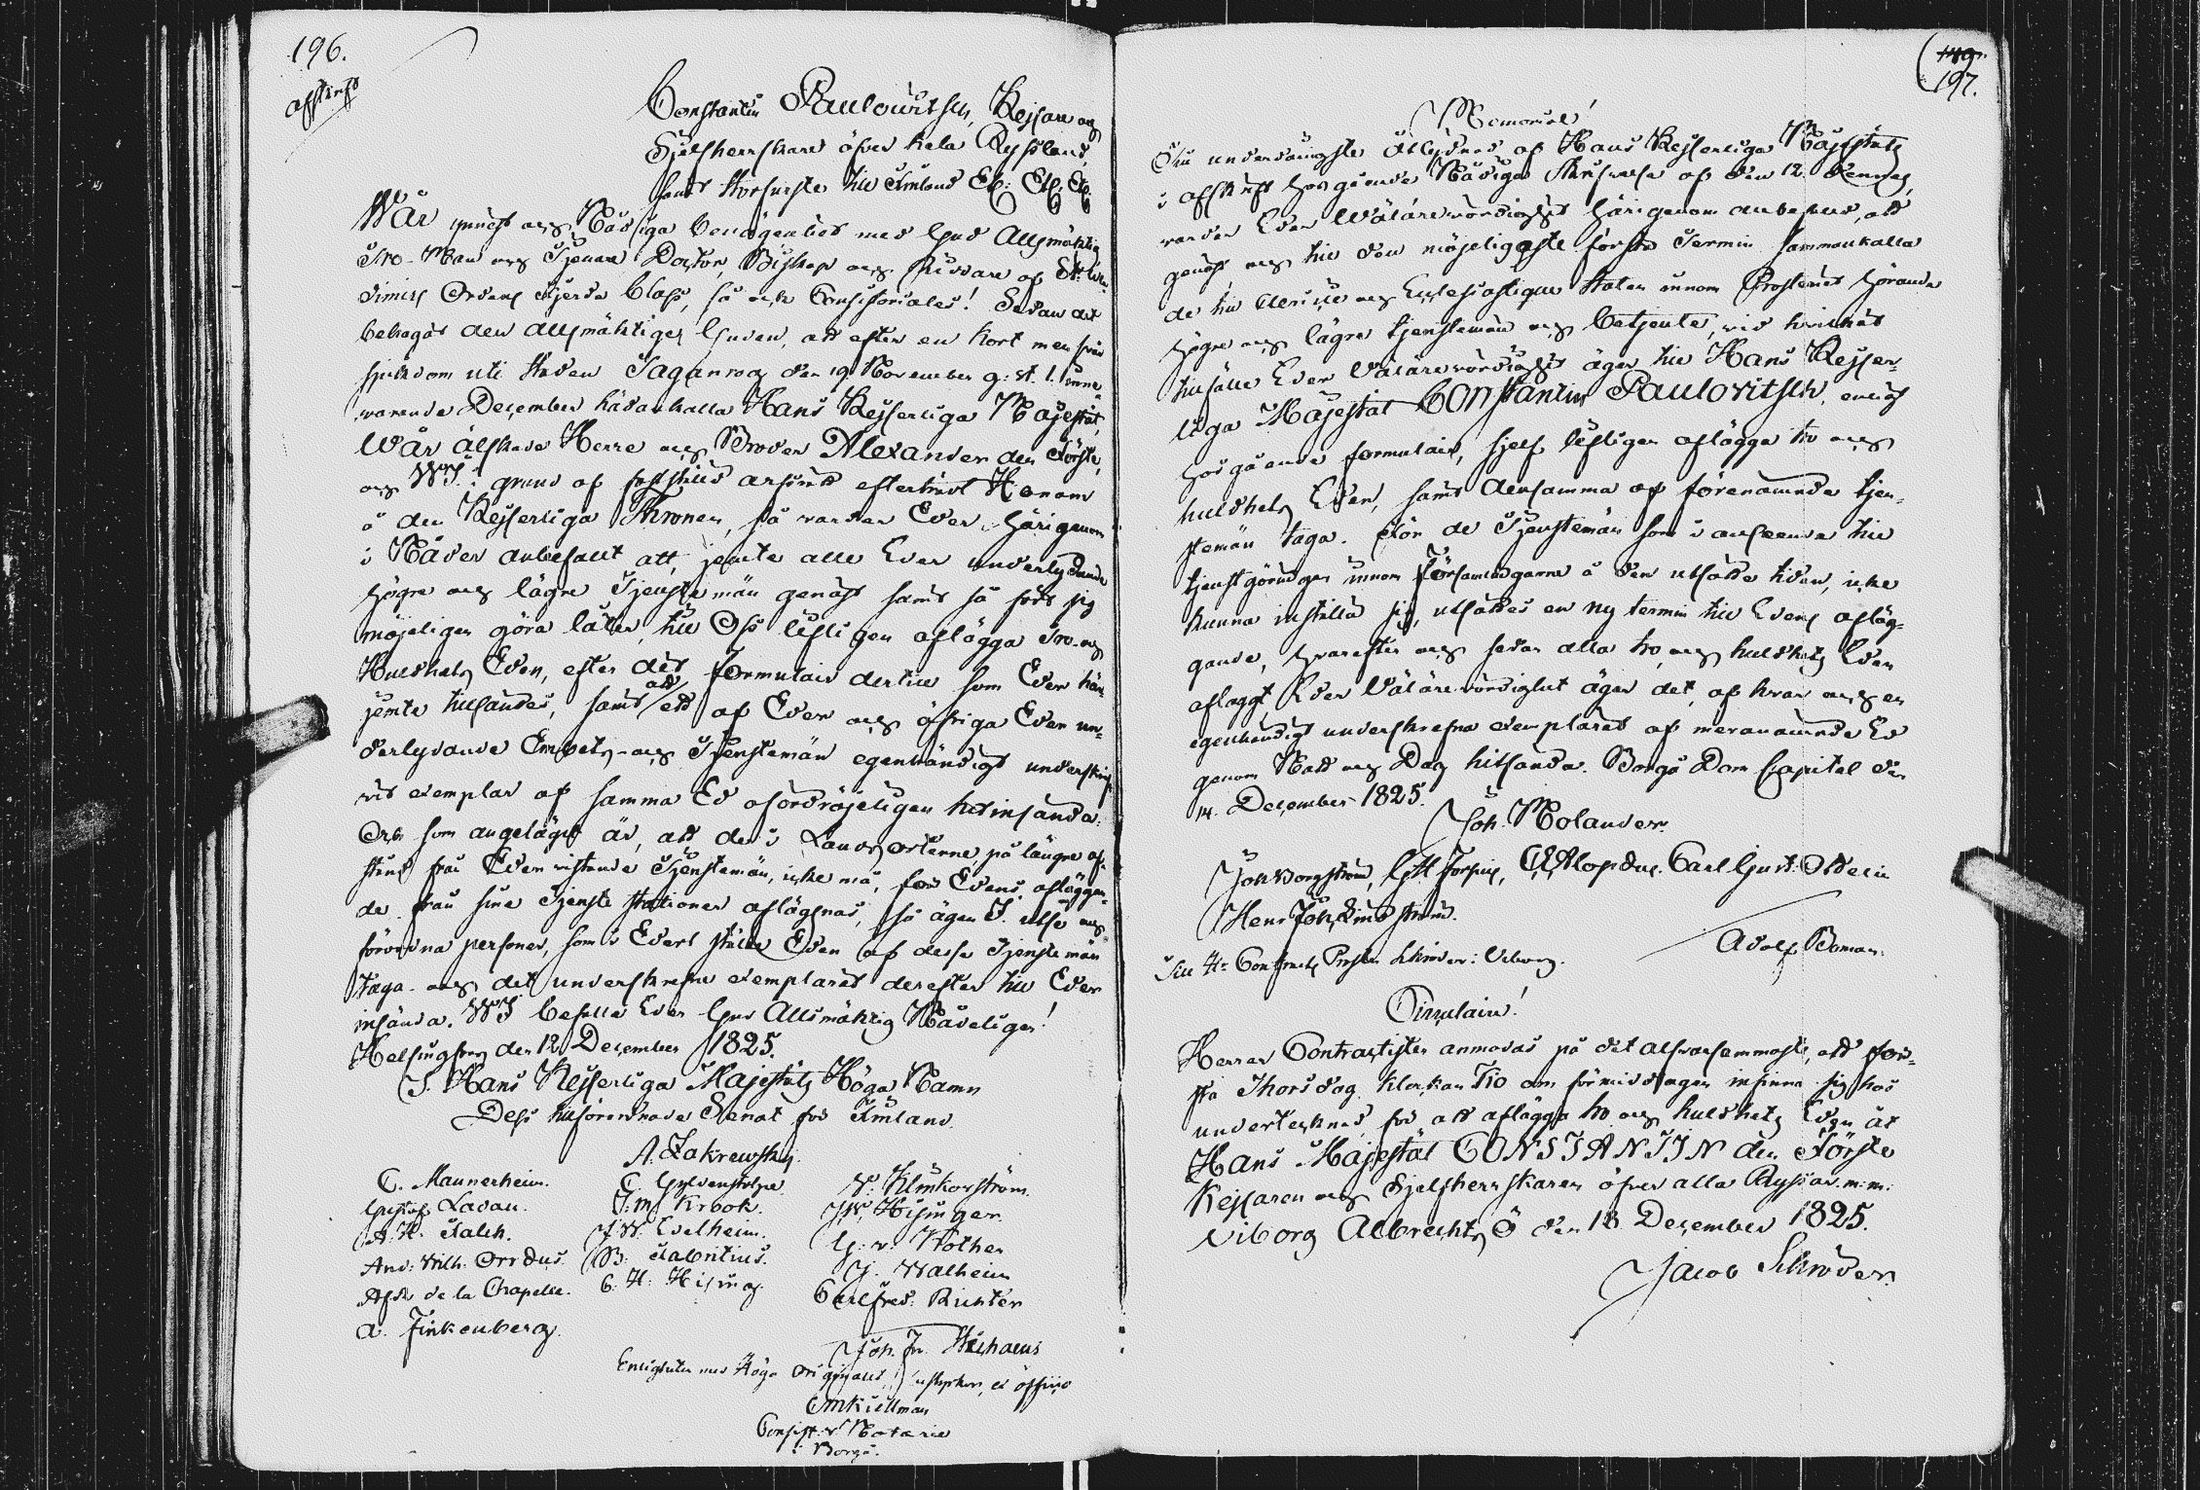 196.
afskrift
Constantin Paulowitsch, Kejsare och
Sjelfherrskare öfver hela Ryssland,
samt Storfurste till Finland Etc: Etc: Etc:
Wår ynnest och Nådiga benägenhet med Gud Allsmäktig
Tro-Man och Tjenare Doctor, Biskop och Riddare af St: Wla-
dimirs Ordens fjerde Class, så ock Consistoriales! Sedan det
behagat den allsmäktiga Guden, att efter en kort men svår
sjukdom uti staden Taganrog den 19 November g: st. 1. inne-
warande December hädankalla Hans Kejserliga Majestät,
Wår älskade Herre och Broder Alexander den Förste,
och WI. i grund af arfsrätt efterträdt Honom
å den Kejserliga Thronen, så warder Eder härigenom
i Nåder anbefallt att, jemte alla Eder underlydande
högre och lägre Tjenstemän genast samt så fort sig
möjeligen göra låter, till Oss lifligen aflägga Tro- och
Huldhets Eden, efter det formulair dertill som Eder här-
jemte tillsändes, samt att ett af Eder och öfriga Eder un-
derlydande Embets- och Tjenstemän egenhändigt underskrif-
vet exemplar af samma Ed ofördröjeligen hitinsända.
Och som angeläget är, att de i Landsorterne, på längre af-
stånd från Eder vistande Tjenstemän, icke må, för Edens afläggan-
de från sina Tjenste stationer aflägsnas, så ägen I. utse och
förordna personer, som i Edert ställe Eden af dessa Tjenstemän
taga och det underskrefna exemplaret derefter till Eder
insända. WI befalle Eder Gud Allsmäktig Nådeligen!
Helsingfors den 12 December 1825.
I Hans Kejserliga Majestäts Höga Namn
Dess tillförordnade Senat för Finland.
A. Zakrewsky.
C. Mannerheim. C. Gyldenstolpe. N: Klinkowström.
Gustaf Ladau. J: M: Krook. W: Hisinger.
A: H: Falck. J: W: Edelheim. G: v: Kothen
And: Wilh: Orrdus. B: Fabritius. J. Walheim
Afd: de la Chapelle. C: H: Hising Carl Fred: Richter
A. Finkenberg.
Joh. Fr. Wichaeus
Enligheten med Höga Originalet, intygar, ex officio
Kiellman
Consist: Notarie
i Borgå.
149.
197.
Memorial!
Till underdånigste åtlydnad af Hans Kejserliga Majestäts
i afskrift hosgående Nådiga Skrifvelse af den 12 dennes,
varder Eder Wälärevördighet härigenom anbefald, att
genast och till den möjeligaste första Termin sammankalla
de till Clericie och Ecclesiastique staten innom Prosteriet hörande
högre och lägre tjenstemän och betjente, vid hvilket
tillfälle Eder Wälärevördighet äger till Hans Kejser-
liga Majestät Constantin Paulovitsch, enligt
hosgående formulair, sjelf lifligen aflägga tro och
huldhets Eden, samt densamma af förenämnde tjen-
stemän taga. För de Tjenstemän som i anseende till
tjenstgöringen innom Församlingarne å den utsatte tiden, icke
kunna inställa sig, utsättes en ny termin till Edens afläg-
gande, hvarefter och sedan alla tro och huldhets Eden
aflaggt, Eder Wälärevördighet äger det, af hvar och en
egenhändigt underskrefna exemplaret af meranämnde Ed
genom Natt och Dag hitsända. Borgå Dom Capitel den
14. December 1825.
Joh. Molander.
Joh Borgström, G: M: Forsius, Alopæus. Carl Gust: Ottelin
Henr Joh, Lindström.
Adolf Boman.
Till Hr Contracts Prosten Schröder: Viborg.
Circulair!
Herrar Contractister anmodas på det alfvarsammaste, att för-
sta Thorsdag klockan Tio om förmiddagen infinna sig hos
undertecknad, för att aflägga tro och huldhets Eden åt
Hans Majestät CONSTANTIN den Förste
Kejsaren och Sjelfherrskaren öfver alla Ryssar. m: m:
Viborg Albrechts Ö den 18 December 1825.
Jacob Schröder.